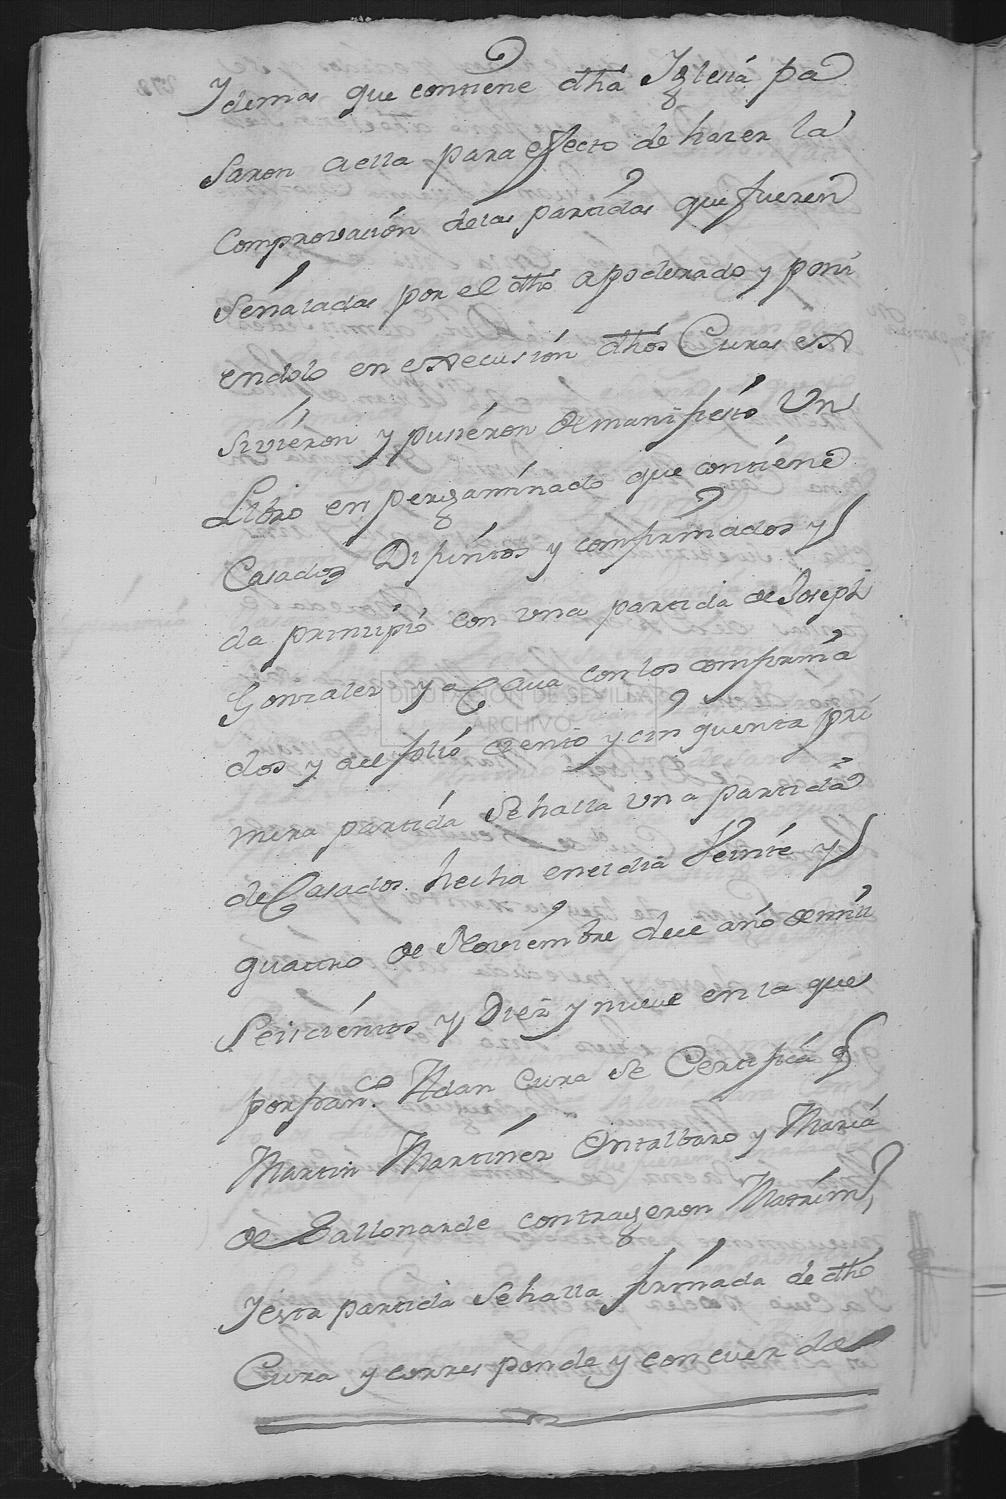 Y demas que contiene dha Yglesia pa
saron a ella para efecto de hazer la
Comprovación delas partidas que fueren
Señaladas por el dho apoderado y poni
endolo en execusión dhos Curas ex
sivieron y pusieron de manifiesto Un
Libro en pergaminado que contiene
Casados Difuntos y confirmados y
da principio con una partida de Joseph
Gonzalez y acava con los confirma
dos y al folio ciento y cinquenta pri
mera partida Se halla una partida
de Casados hecha en el dia Veinte y
quattro de Noviembre de el año de mil
Seiscientos y Diez y nueve en la que
por fran.co Adan Cura se Certifica q
Martin Martinez Ontalbaro y Maria
de Ballonarde contrageron Matrim
Y esta partida Se halla firmada de dho
Cura y corresponde y concuerda
DIPUTACION DE SEVILLA
ARCHIVO